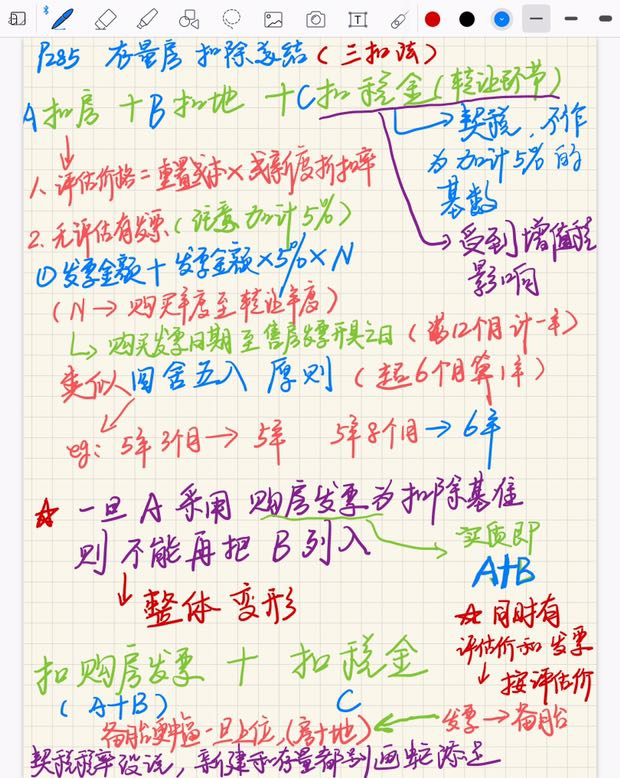 P285 存量房 扣除总结（三扣法）
A扣房 + B扣地 + C扣税金（转让环节）
→ 契税，不作为加计5%的基数
→ 受到增值税影响
1. 评估价格 = 重置成本 × 成新度折扣率
2. 无评估有发票（注意加计5%）
① 发票金额 + 发票金额 × 5% × N
（N → 购买年度至转让年度）
↳ 购买发票日期至售房发票开具之日（满12个月计一年）
类似 四舍五入 原则（超6个月算1年）
eg：5年3个月 → 5年 5年8个月 → 6年
☆ 一旦 A 采用 购房发票为扣除基准
则 不能再把 B 列入
→ 实质即
A+B
↓ 整体 变形
☆ 同时有
评估价和发票
↓ 按评估价
扣购房发票 + 扣税金
（A+B） C
备胎 一旦上位，（房+地） ← 发票 → 备胎
契税税率没说，新建和存量都